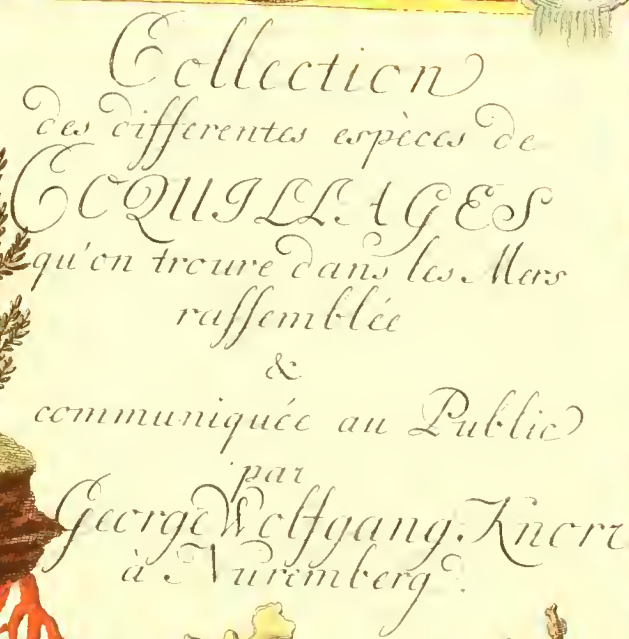 Collection
des differentes espèces de
COQUILLAGES
qu'on trouve dans les Mers
raſſemblée
&
communiquée au Public
par
George Wolfgang Knorr
à Nuremberg.